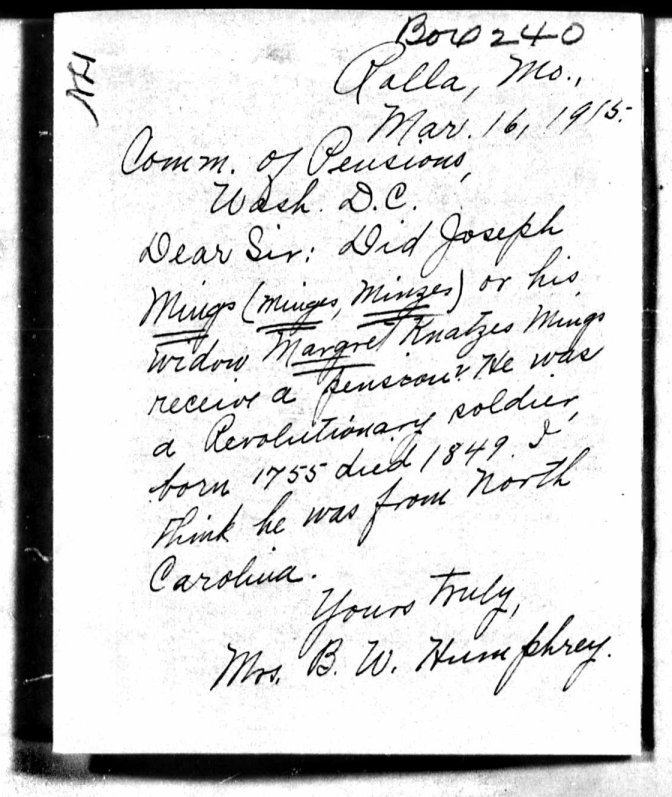 Box 240
Rolla, Mo.,
Mar. 16, 1915.
Comm. of Pensions,
Wash. D.C.
Dear Sir: Did Joseph
Mings (Minges, Minzes) or his
widow Margret Knatzes Mings
receive a pension? He was
a Revolutionary soldier,
born 1755 died 1849. I
think he was from North
Carolina.
Yours truly,
Mrs. B. W. Humphrey.